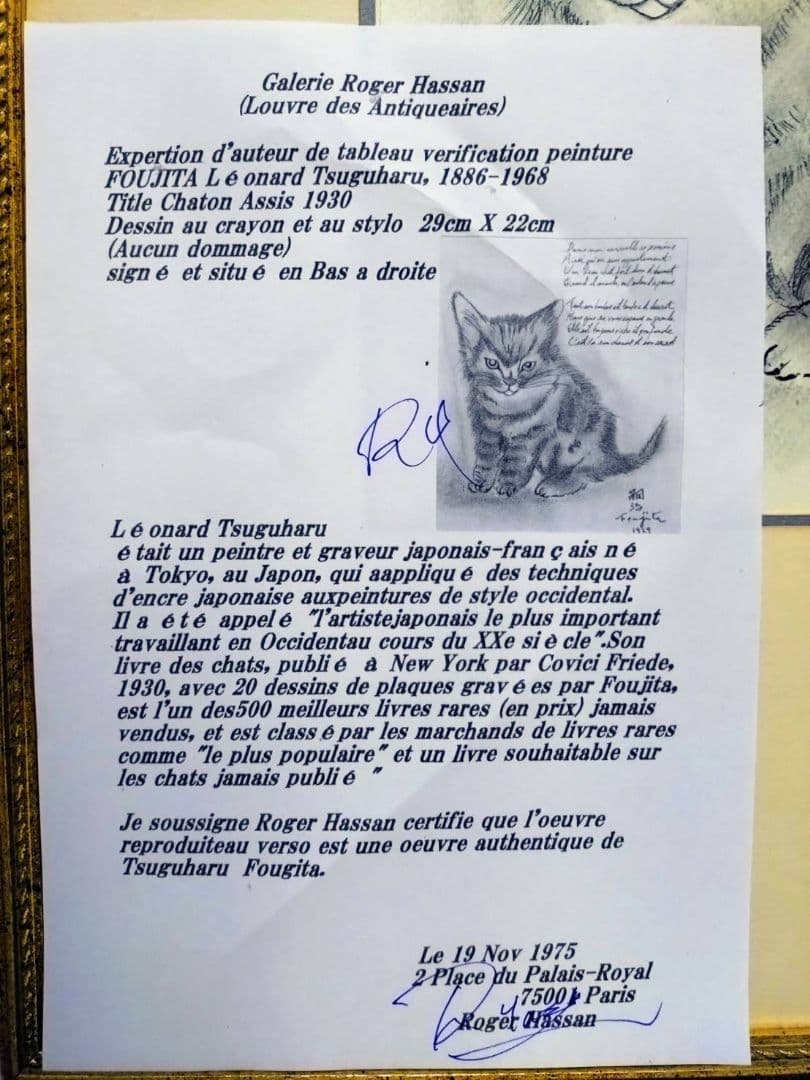 Galerie Roger Hassan
(Louvre des Antiqueaires)
Expertion d'auteur de tableau verification peinture
FOUJITA Lé onard Tsuguharu, 1886-1968
Title Chaton Assis 1930
Dessin au crayon et au stylo 29cm X 22cm
(Aucun dommage)
sign é et situ é en Bas a droite
Foujita
Lé onard Tsuguharu
é tait un peintre et graveur japonais-fran ç ais n é
à Tokyo, au Japon, qui aappliqu é des techniques
d'encre japonaise auxpeintures de style occidental.
Il a é t é appel é "l'artistejaponais le plus important
travaillant en Occidentau cours du XXe si è cle".Son
livre des chats, publi é à New York par Covici Friede,
1930, avec 20 dessins de plaques grav é es par Foujita,
est l'un des500 meilleurs livres rares (en prix) jamais
vendus, et est class é par les marchands de livres rares
comme "le plus populaire" et un livre souhaitable sur
les chats jamais publi é "
Je soussigne Roger Hassan certifie que l'oeuvre
reproduiteau verso est une oeuvre authentique de
Tsuguharu Fougita.
Le 19 Nov 1975
2 Place du Palais-Royal
75001 Paris
Roger Hassan